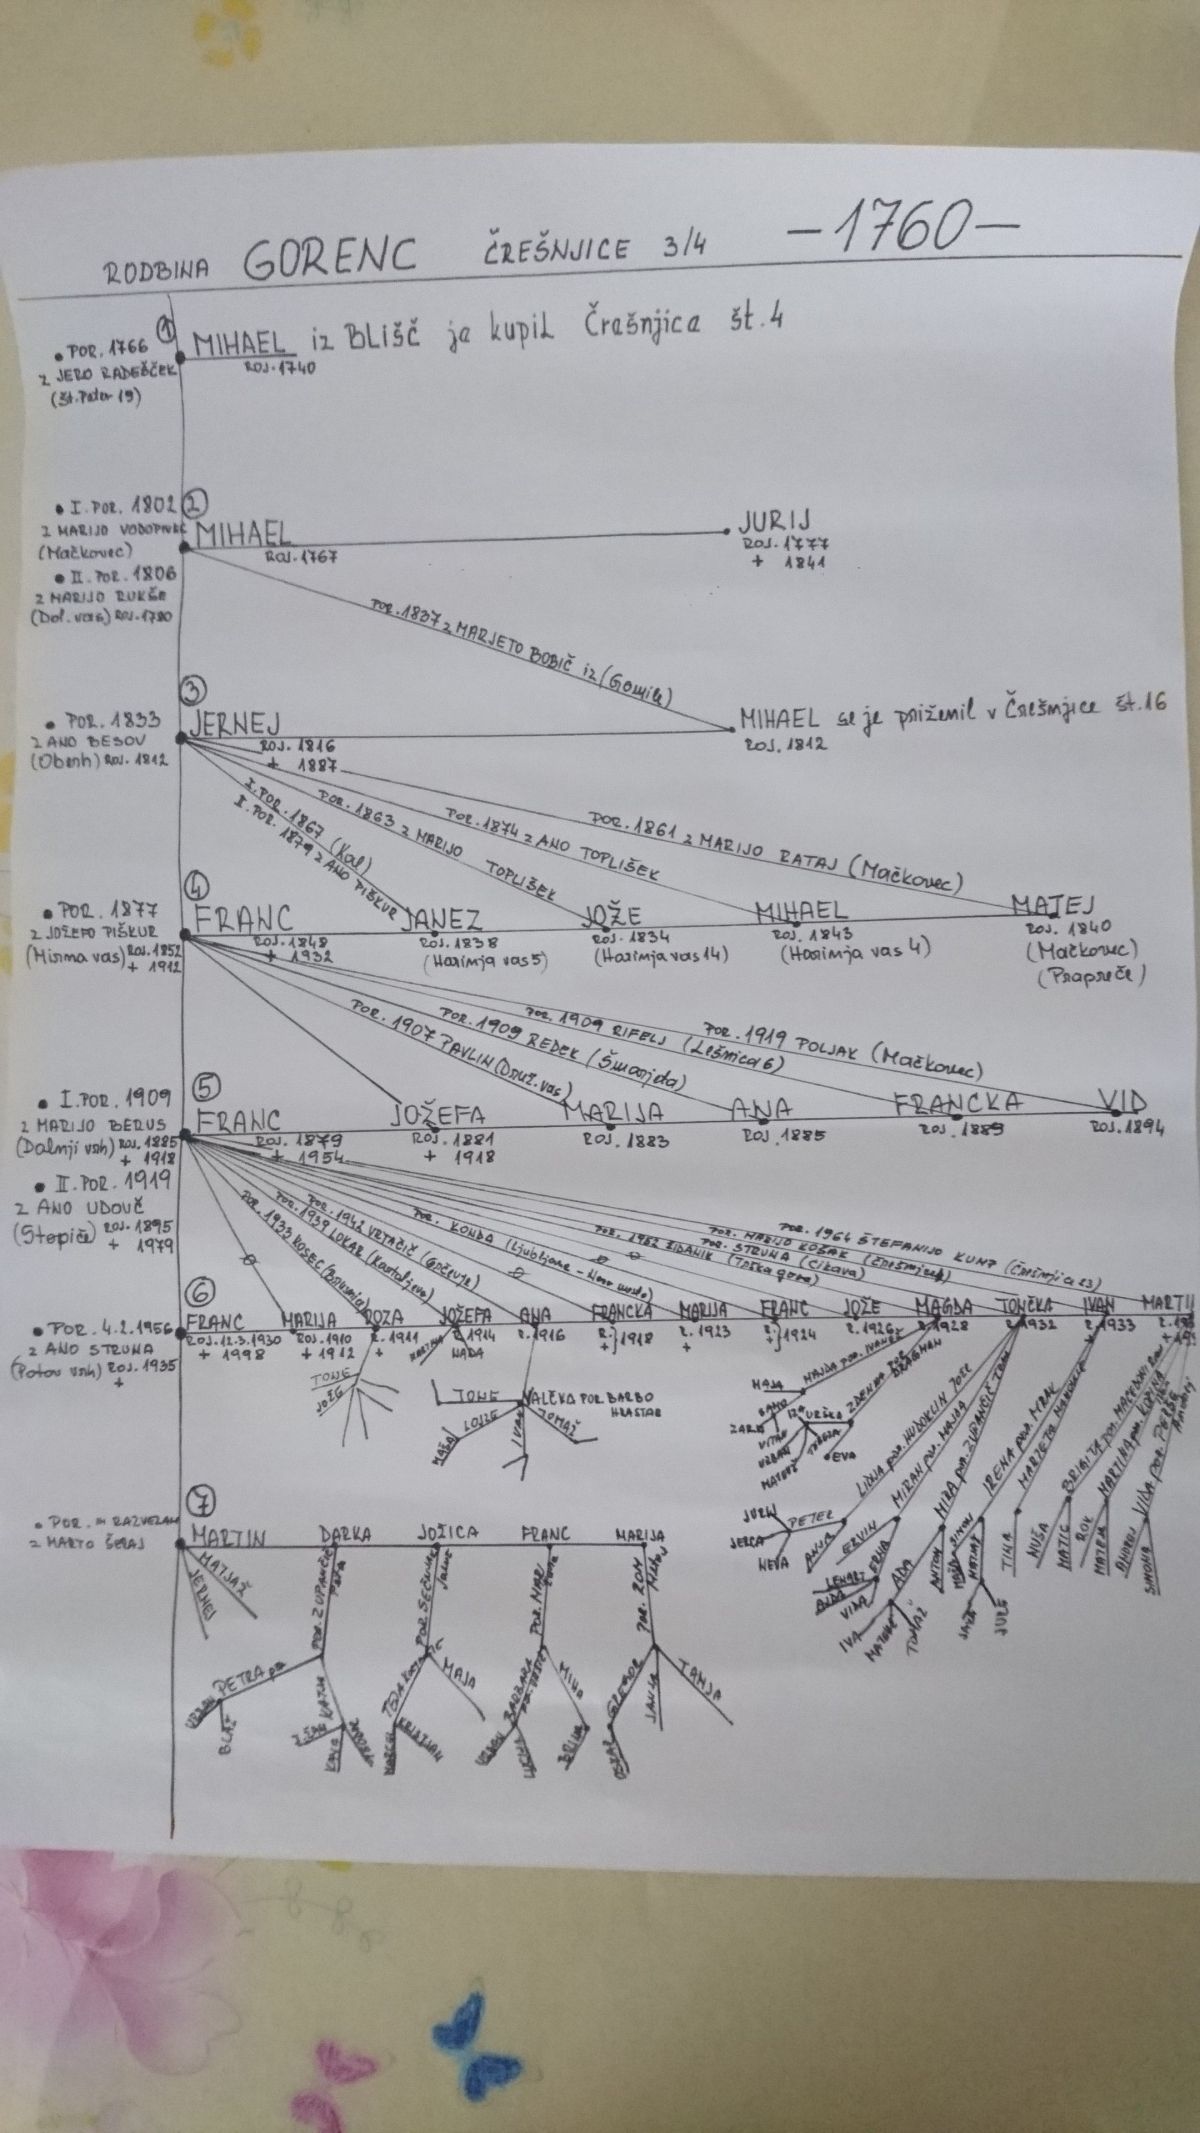 RODBINA GORENC ČREŠNJICE 3/4 -1760-
1
• POR. 1766
Z JERO RADEŠČEK
(Št. Peter 19)
MIHAEL iz BLIŠČ je kupil Črešnjice št. 4
ROJ. 1740
2
• I. POR. 1802
Z MARIJO VODOPIVEC
(Mačkovec)
• II. POR. 1806
Z MARIJO RUKŠE
(Dol. vas) ROJ. 1780
MIHAEL
ROJ. 1767
JURIJ
ROJ. 1777
+ 1841
POR. 1837 Z MARJETO BOBIČ iz (Gomile)
3
• POR. 1833
Z ANO BESOV
ROJ. 1812
JERNEJ
ROJ. 1816
+ 1887
MIHAEL se je priženil v Črešnjice št. 16
ROJ. 1812
I. POR. 1867 (Kal)
II. POR. 1879 Z ANO PIŠKUR
POR. 1863 Z MARIJO TOPLIŠEK
POR. 1874 Z ANO TOPLIŠEK
POR. 1861 Z MARIJO RATAJ (Mačkovec)
4
• POR. 1877
Z JOŽEFO PIŠKUR
(Mirna vas) ROJ. 1852
+ 1912
FRANC
ROJ. 1848
+ 1932
JANEZ
ROJ. 1838
(Harinja vas 5)
JOŽE
ROJ. 1834
(Harinja vas 14)
MIHAEL
ROJ. 1843
(Harinja vas 4)
MATEJ
ROJ. 1840
(Mačkovec)
(Prapreče)
POR. 1907 PAVLIN (Druž. vas)
POR. 1909 REDEK (Šmarjeta)
POR. 1909 RIFELJ (Lešnica 6)
POR. 1919 POLJAK (Mačkovec)
5
• I. POR. 1909
Z MARIJO BERUS
(Dalnji vrh) ROJ. 1885
+ 1918
• II. POR. 1919
Z ANO UDOVČ
(Stopiče) ROJ. 1895
+ 1979
FRANC
ROJ. 1879
+ 1954
JOŽEFA
ROJ. 1881
+ 1918
MARIJA
ROJ. 1883
ANA
ROJ. 1885
FRANCKA
ROJ. 1889
VID
ROJ. 1894
POR. 1933 KOSEC
POR. 1939 LOKAR
POR. 1942 VRTAČIČ
POR. KONDA (Ljubljana - Novo mesto)
POR. 1952 ZIDANIK (Trška gora)
POR. STRUNA (Cikava)
POR. MARIJO KOŠAK
POR. 1964 ŠTEFANIJO
6
• POR. 4.2.1956
Z ANO STRUNA
(Potov vrh) ROJ. 1935
+
FRANC
ROJ. 12.3.1930
+ 1998
MARIJA
ROJ. 1910
+ 1912
ROZA
R. 1911
+
JOŽEFA
R. 1914
ANA
R. 1916
FRANCKA
R. + } 1918
MARIJA
R. 1923
+
FRANC
R. + } 1924
JOŽE
R. 1926
MAGDA
R. 1928
TONČKA
R. 1932
IVAN
R. 1933
+
MARTIN
TONE
JOŽE
MARTINA
NADA
TONE
LOJZE
MAŠA
IVAN
TOMAŽ
VALČKA POR. BARBO
HRASTAR
MAJDA POR. IVANEŽ
ZDENKA POR. DRAGMAN
ŽARE
VITAN
URBAN
MATEVŽ
IZA
URŠKA
TADEJA
EVA
LIDIJA POR. HUDOKLIN JOŽE
MIRAN POR. MAJDA
MIRA POR. ZUPANČIČ TONI
IRENA POR. MRAK
MARJETA
BRIGITA POR. MACEDONI
MARTINA POR. KOPINA
VIDA POR. PERŠE
JURIJ
JERCA
NEVA
PETER
ANJA
ERVIN
ERNA
LENART
AJDA
VIDA
ADA
IVA
MATEVŽ
TOMAŽ
ANTON
SIMON
MATJAŽ
JAKA
JURE
TINA
NUŠA
MATIC
ROK
MATEJA
ANDREJ
SIMONA
7
• POR. IN RAZVEZAN
Z MARTO ŠERAJ
MARTIN
DARKA
JOŽICA
FRANC
MARIJA
MATJAŽ
JERNEJ
POR. ZUPANČIČ
POR. SEČNIK
POR. ZON
PETRA
BLAŽ
KATJA
MAJA
KRISTJAN
BARBARA
MIHA
GREGOR
JANJA
TANJA